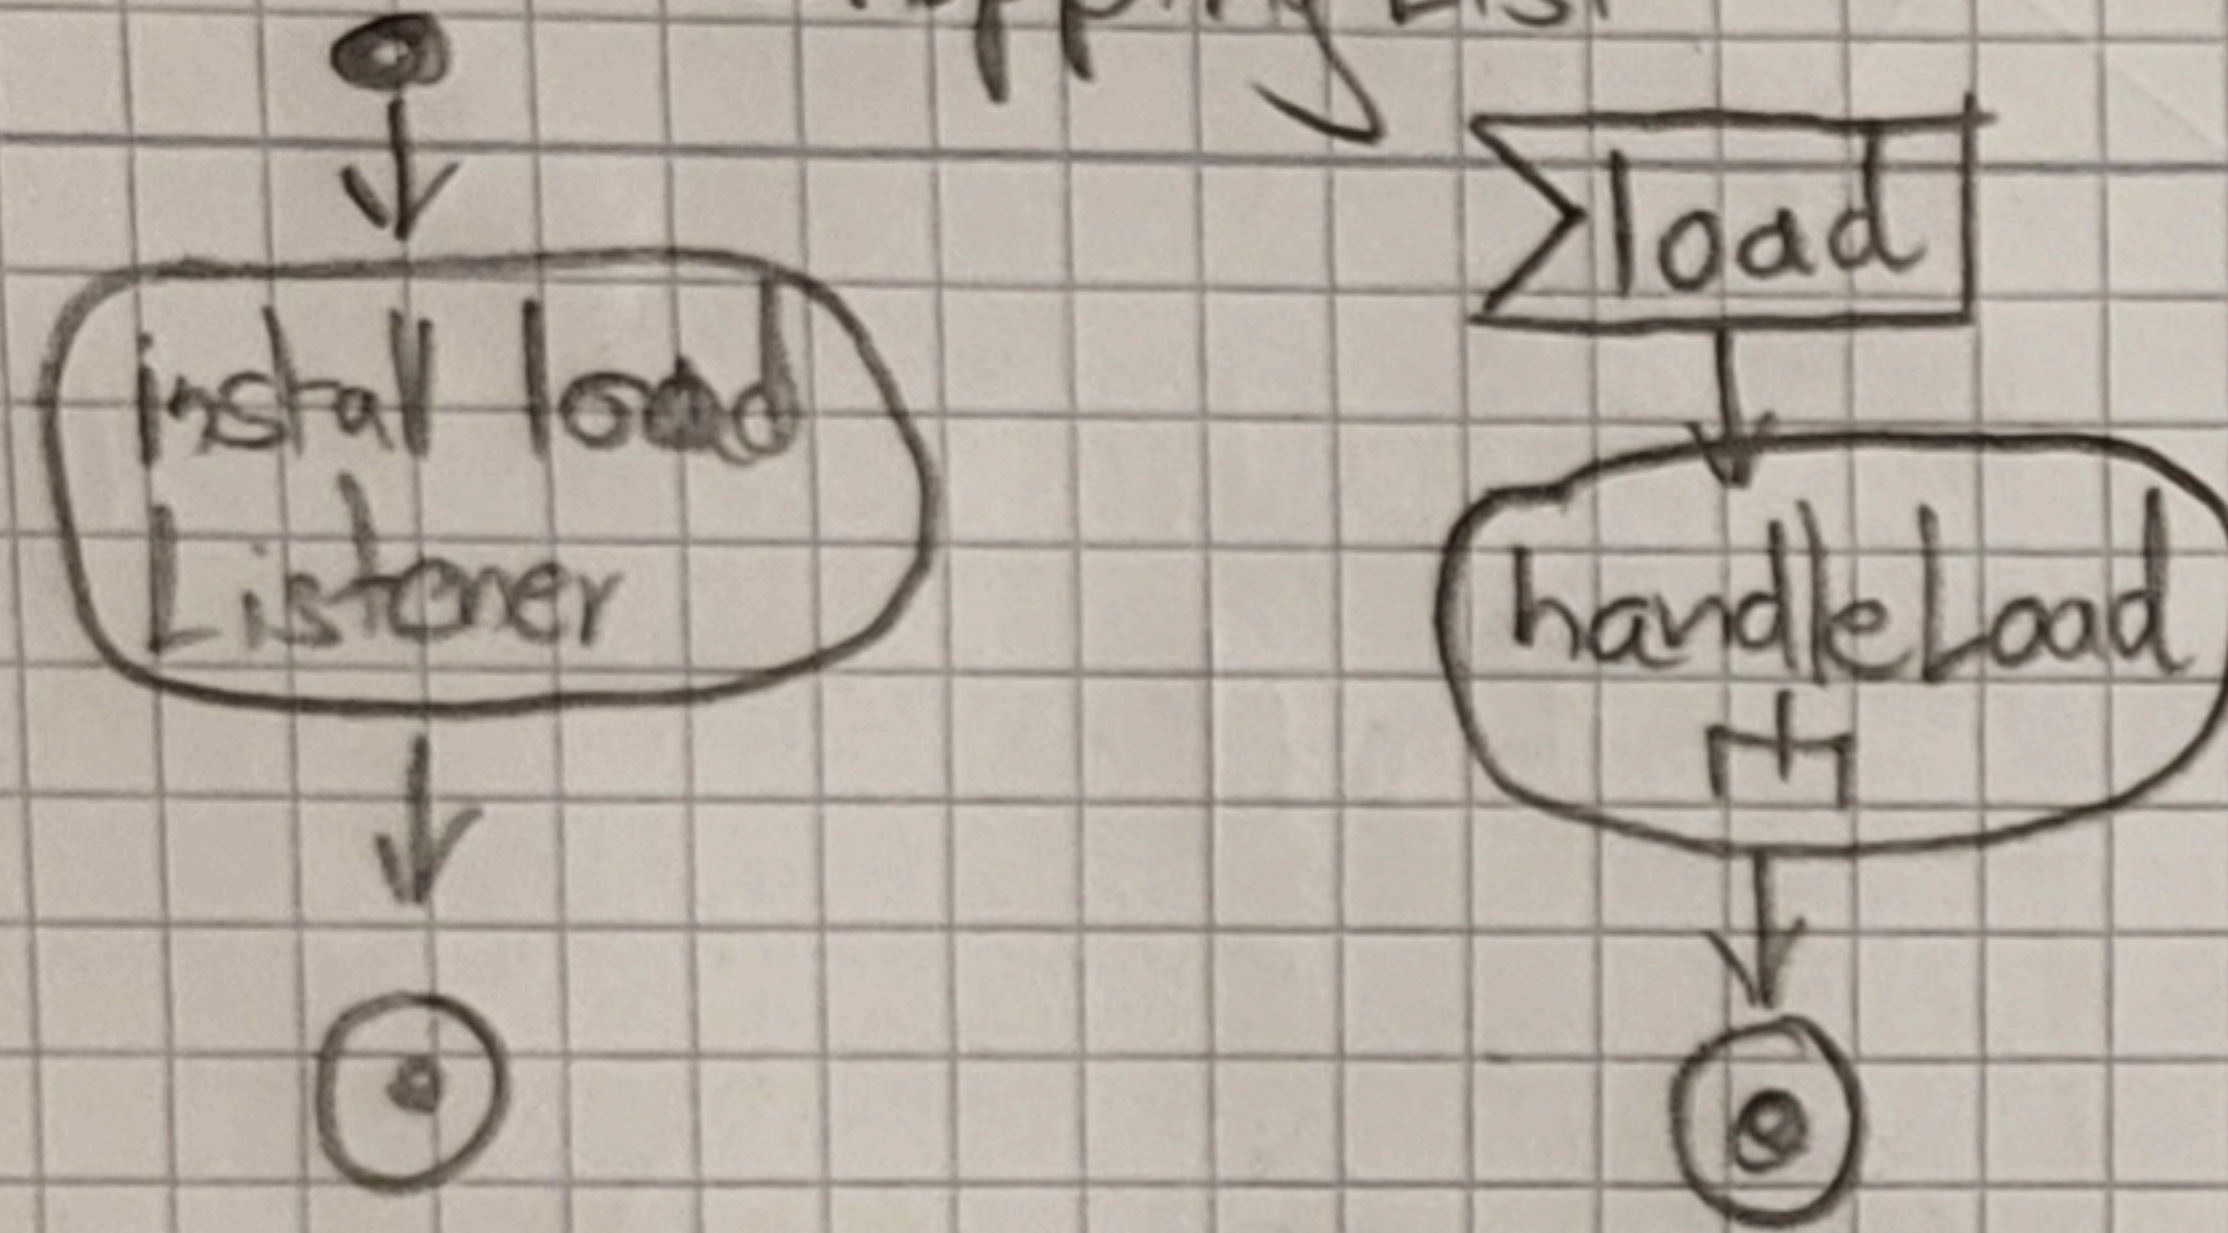 List
install load
Listener
load
handleLoad